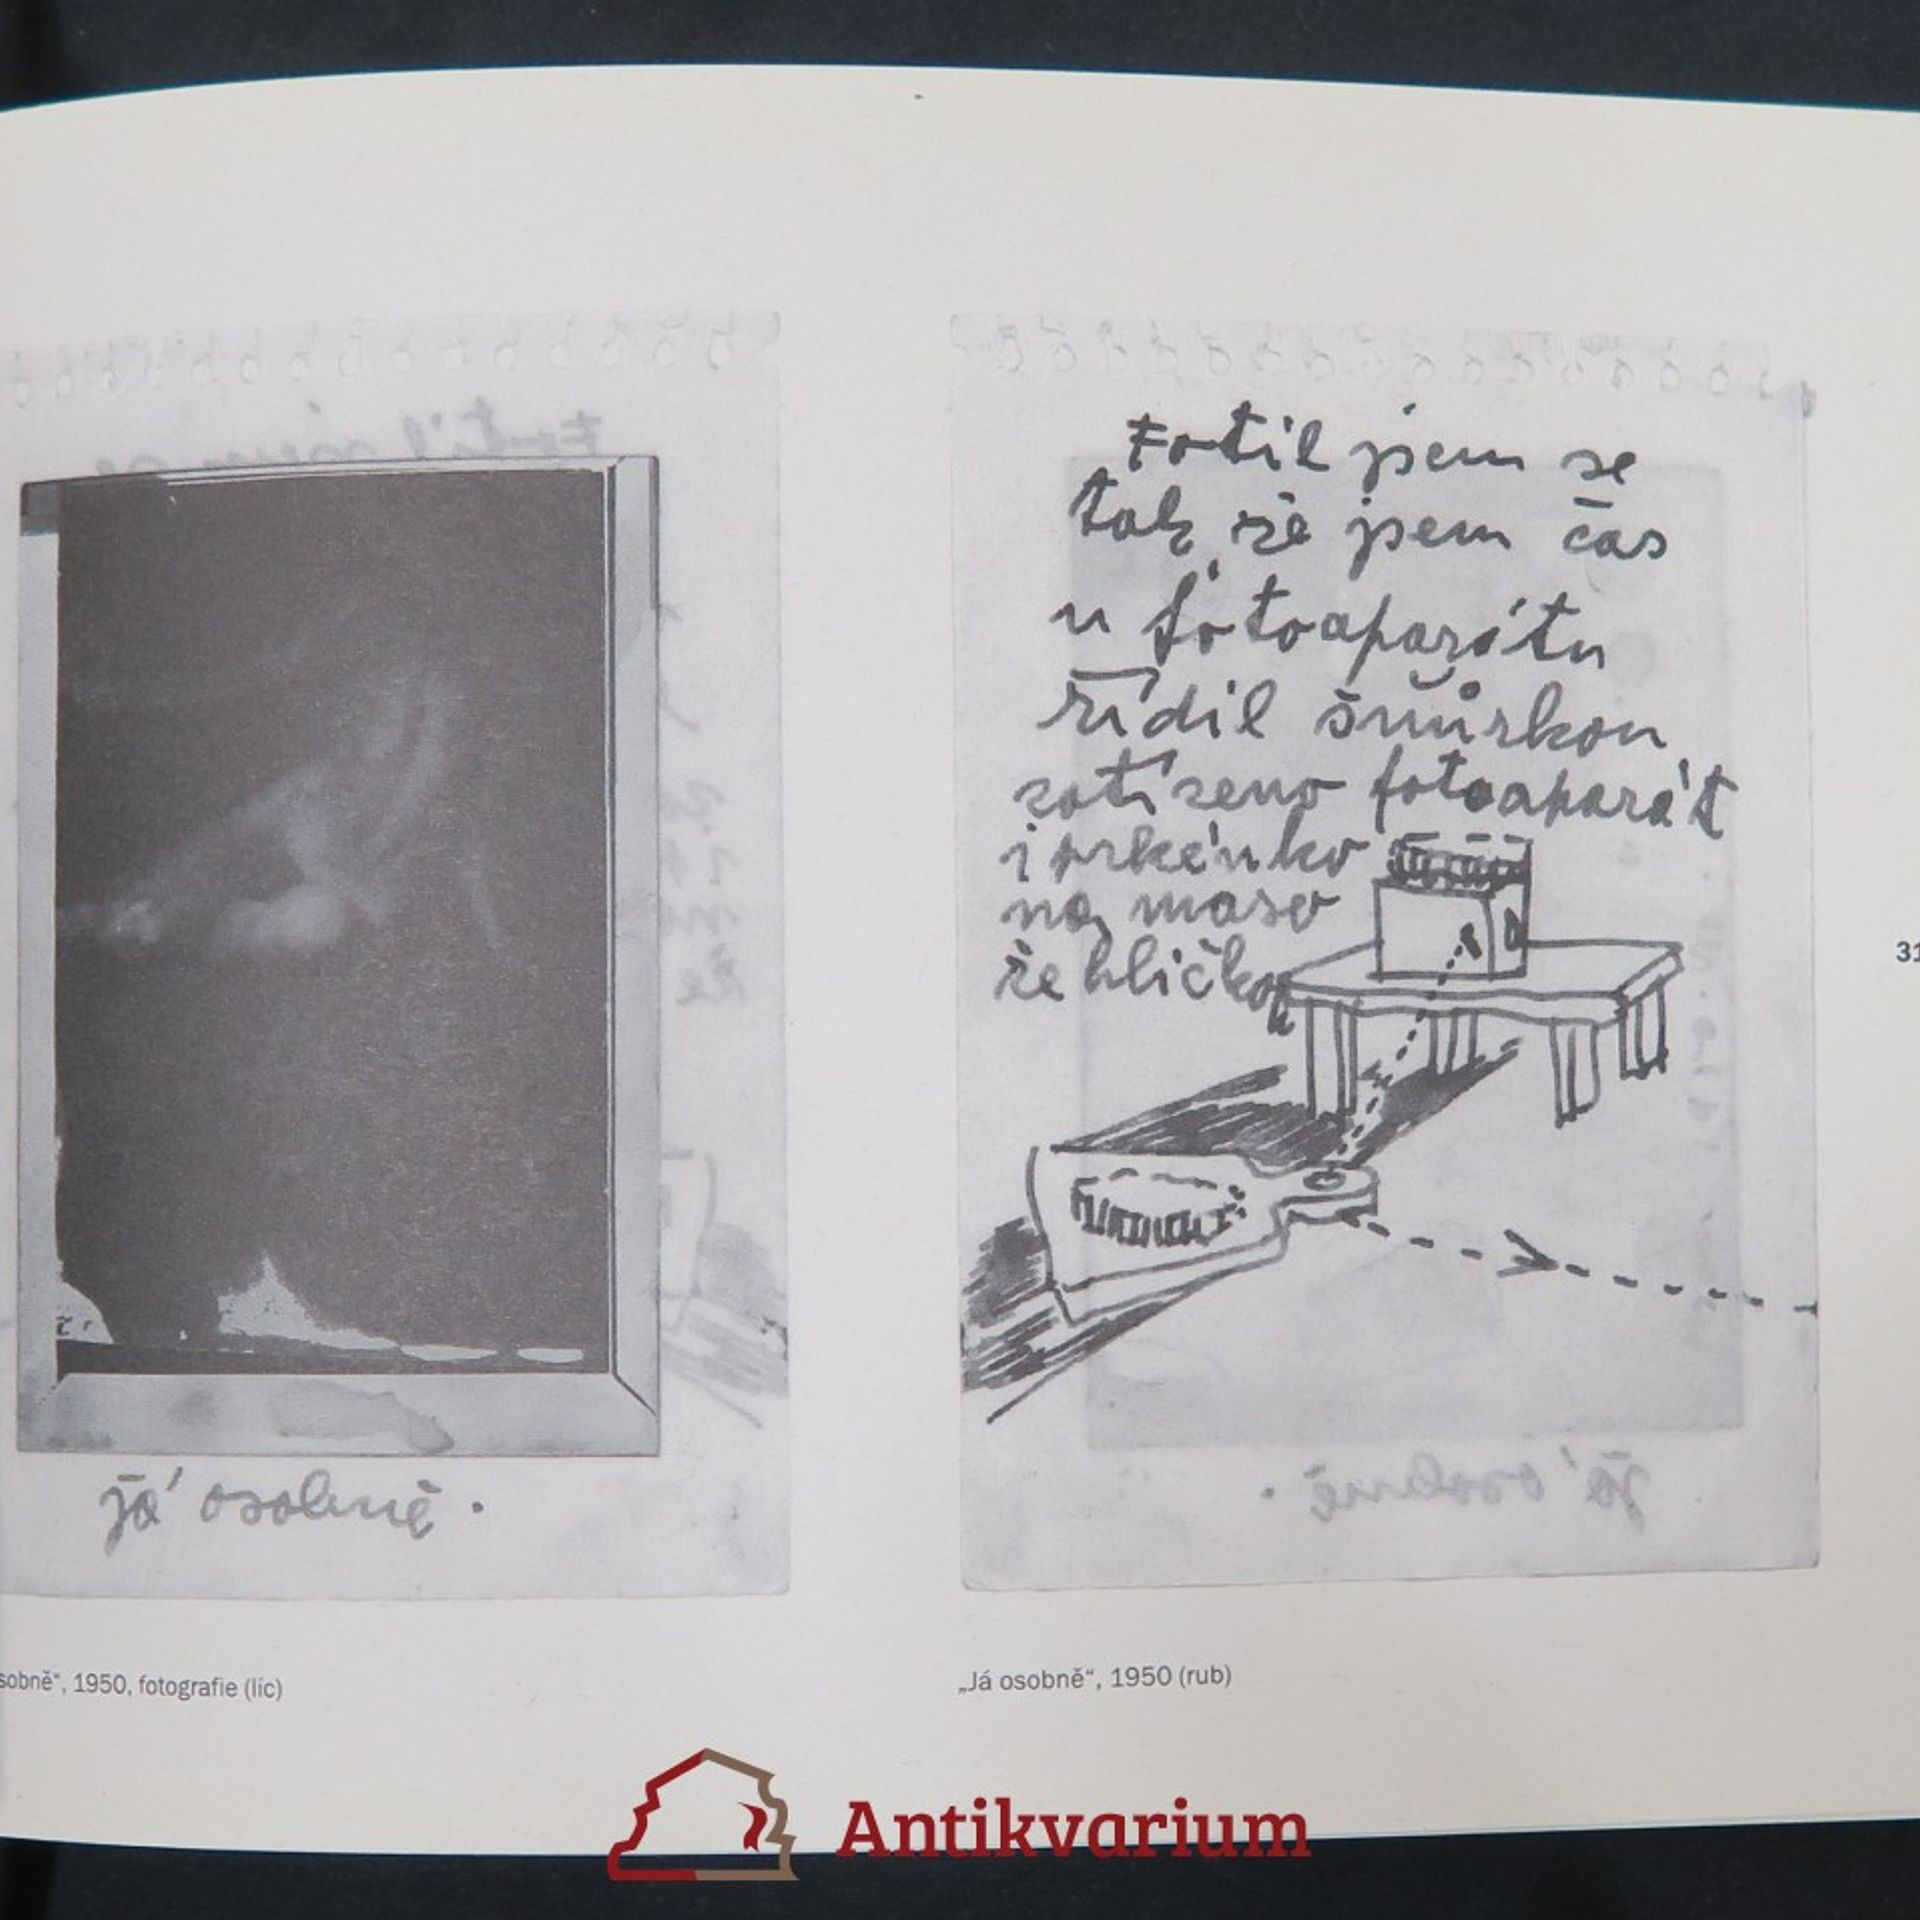 já osobně.
sobně“, 1950, fotografie (líc)
Fotil jsem se
tak že jsem čas
u fotoaparátu
řídil šňůrkou
zatíženo fotoaparát
i prkénko
na maso
žehličkou
„Já osobně“, 1950 (rub)
31
Antikvarium